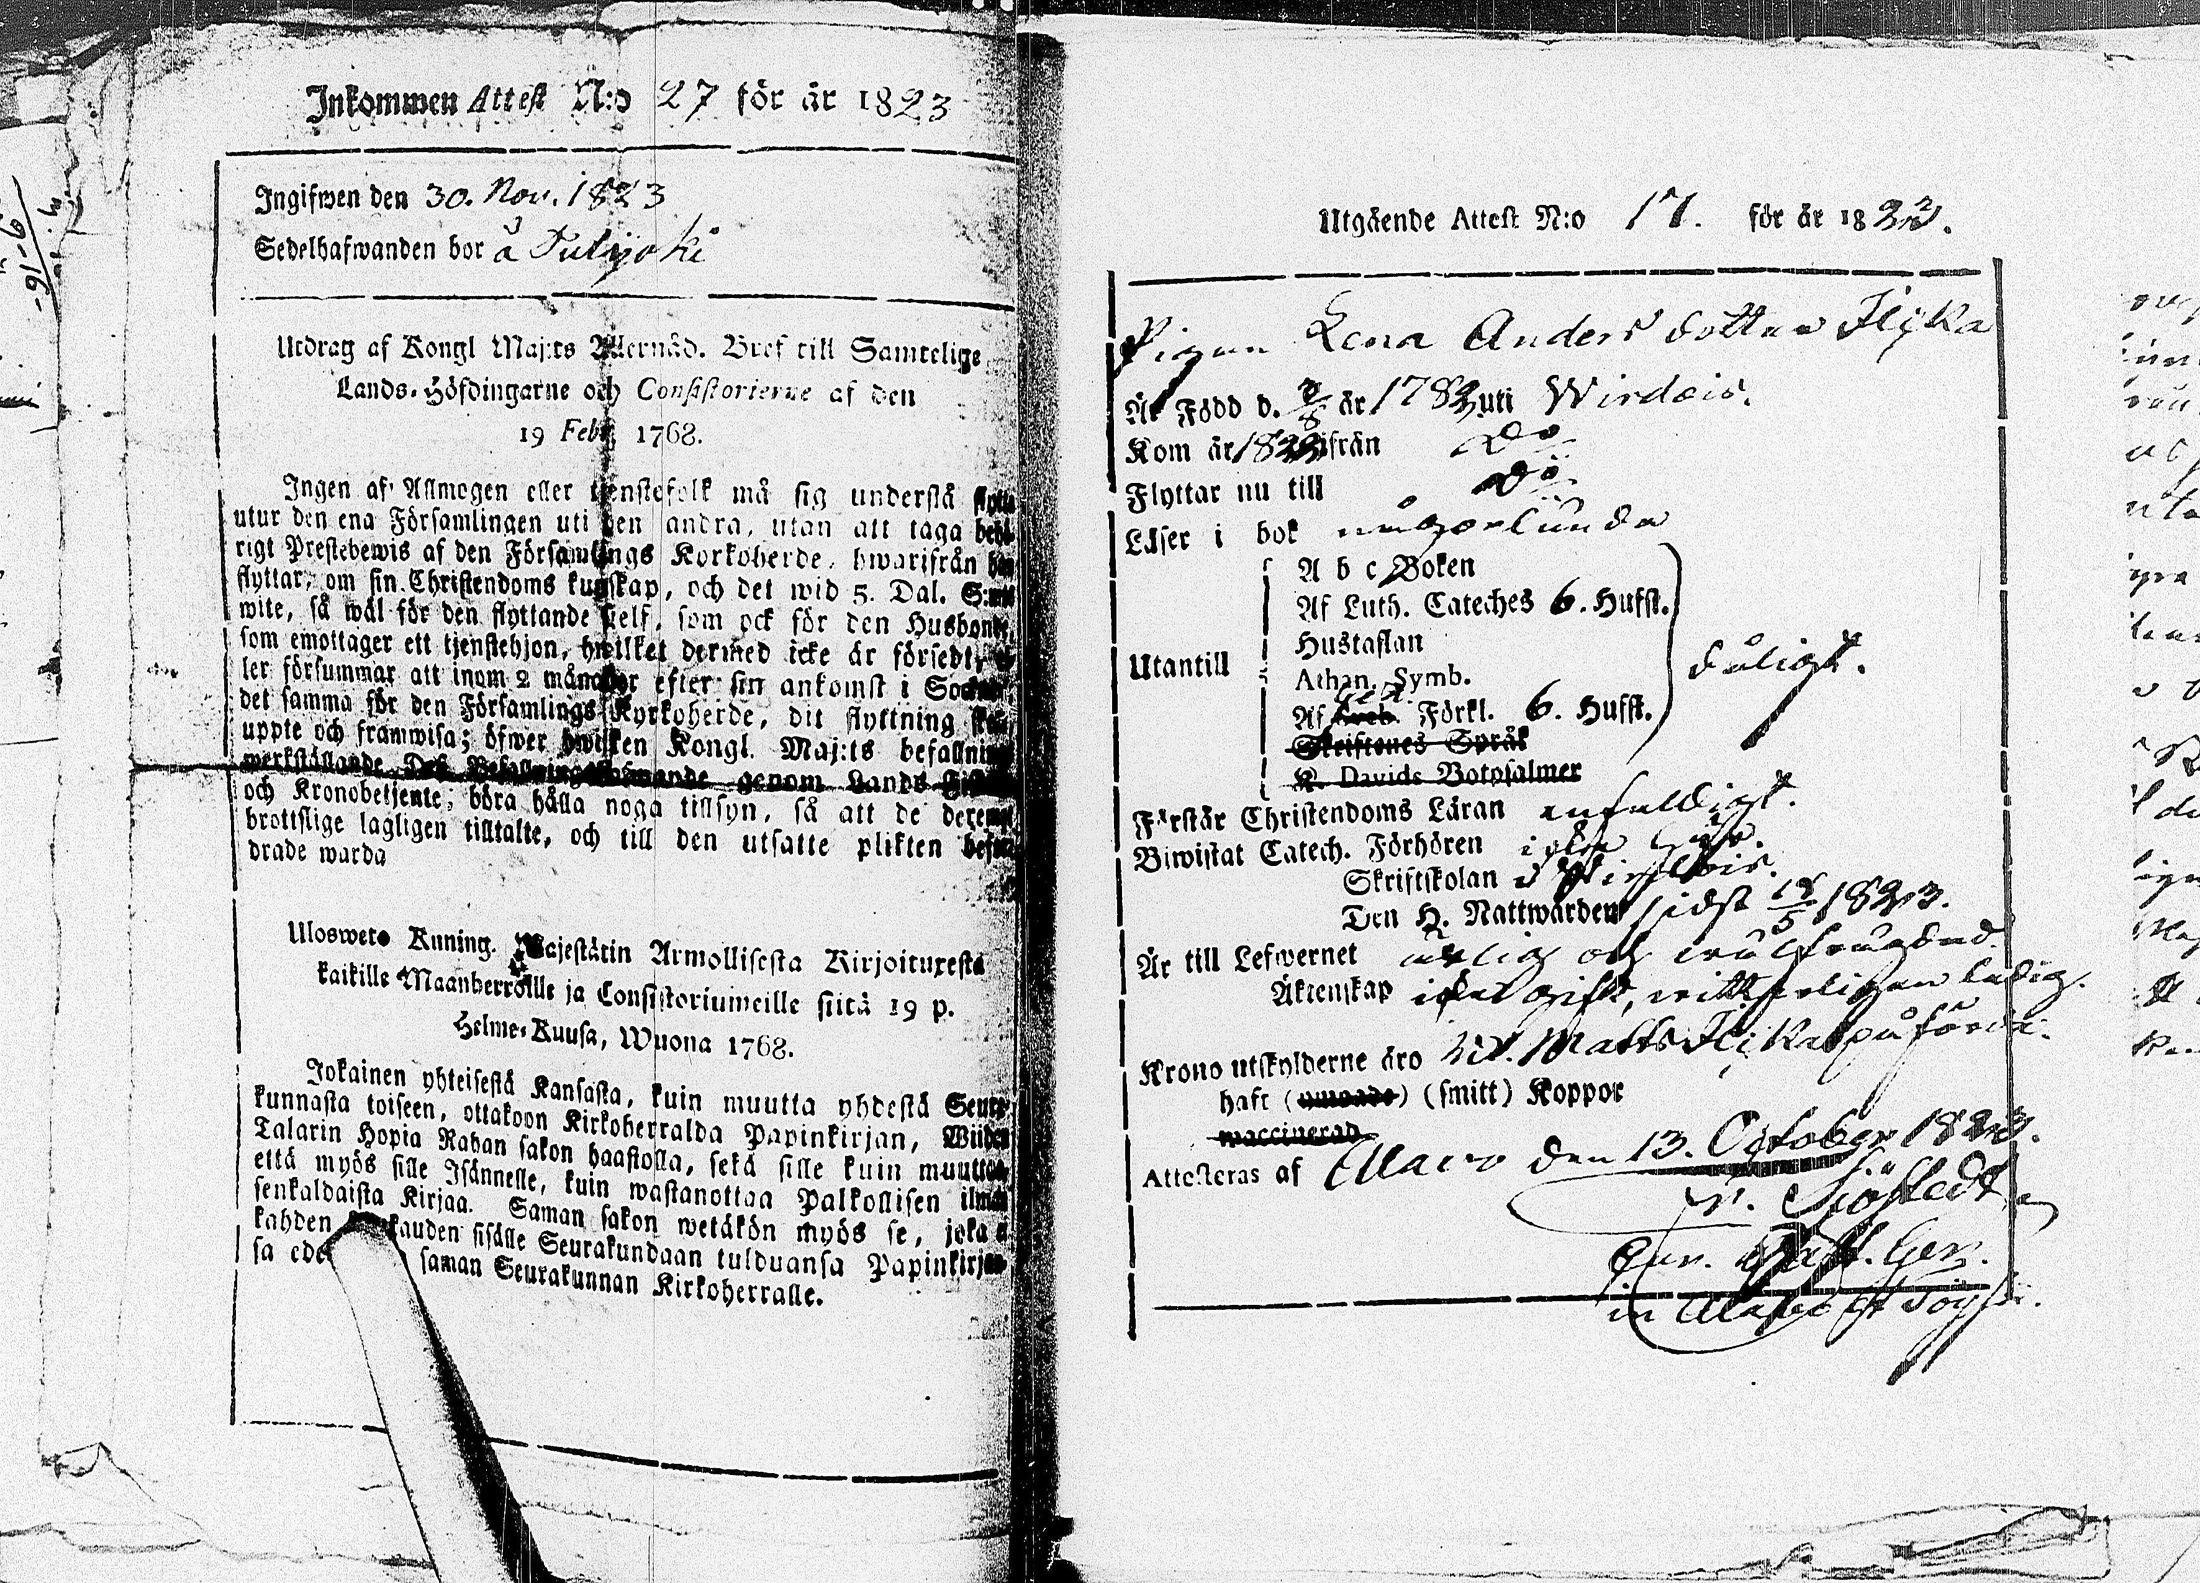 Inkommen Attest N:o 27 för år 1823
Ingifwen den 30. Nov. 1823
Sedelhafwanden bor å Pulyoki
Utdrag af Kongl Maj:ts Allernåd. Bref till Samtelige
Lands-Höfdingarne och Consistorierne af den
19 Febr. 1768.
Ingen af Allmogen eller tjenstefolk må sig understå flytta
utur den ena Församlingen uti den andra, utan att taga behö-
rigt Prestebewis af den Församlings Korkoherde, hwarifrån han
flyttar, om sin Christendoms kunskap, och det wid 5. Dal. S:mts
wite, så wäl för den flyttande sielf, som ock för den Husbonde,
som emottager ett tjenstehjon, hwilket dermed icke är försedt, el-
ler försummar att inom 2 månader efter sin ankomst i Socknen,
det samma för den Församlings Kyrkoherde, dit flyttning sker,
uppte och framwisa; öfwer hwilken Kongl. Maj:ts befallnings
werkställande Des Befallningshafwande genom Lands-Fiskaler
och Kronobetjente, böra hålla noga tillsyn, så att de deremot
brottslige lagligen tilltalte, och till den utsatte plikten befor-
drade warda
Ulosweto Kuning. Majestätin Armollisesta Kirjoituxesta
kaikille Maanherroille ja Consistoriumeille siitä 19 p.
Helme-Kuusa, Wuona 1768.
Jokainen yhteisestä Kansasta, kuin muutta yhdestä Seura-
kunnasta toiseen, ottakoon Kirkoherralda Papinkirjan, Wiiden
Talarin Hopia Rahan sakon haastolla, sekä sille kuin muuttaa,
että myös sille Isännelle, kuin wastanottaa Palkollisen ilman
senkaldaista Kirjaa. Saman sakon wetäkön myös se, joka ei
kahden kauden sisälle Seurakundaan tulduansa Papinkirjan-
sa ede saman Seurakunnan Kirkoherralle.
Utgående Attest N:o 17. för år 1823.
Pigan Lena Anders dotter Flyka
Är Född d. år 1782 uti Wirdois.
Kom år 1822 ifrån Do
Flyttar nu till Do
Läser i bok någorlunda
A b c Boken
Af Luth. Cateches 6. Hufst.
Hustaflan
Utantill
Athan. Symb.
dåligt.
Af Förkl. 6. Hufst.
Skriftenes Språk
K. Davids Botpsalmer
Förstår Christendoms Läran enfaldigt.
Biwistat Catech. Förhören
Skriftskolan i Wirdois.
Den H. Nattwarden sidst 18/5 1823.
Är till Lefwernet ärlig och wälfrägdad.
Äktenskap icke gift, witterligen ledig.
Krono utskylderne äro Matts påförde.
haft (umgådt) (smitt) Koppor
waccinerad
Attesteras af Alavo den 13. October 1823.
Sjöstedt
in Alavo et Töysä.